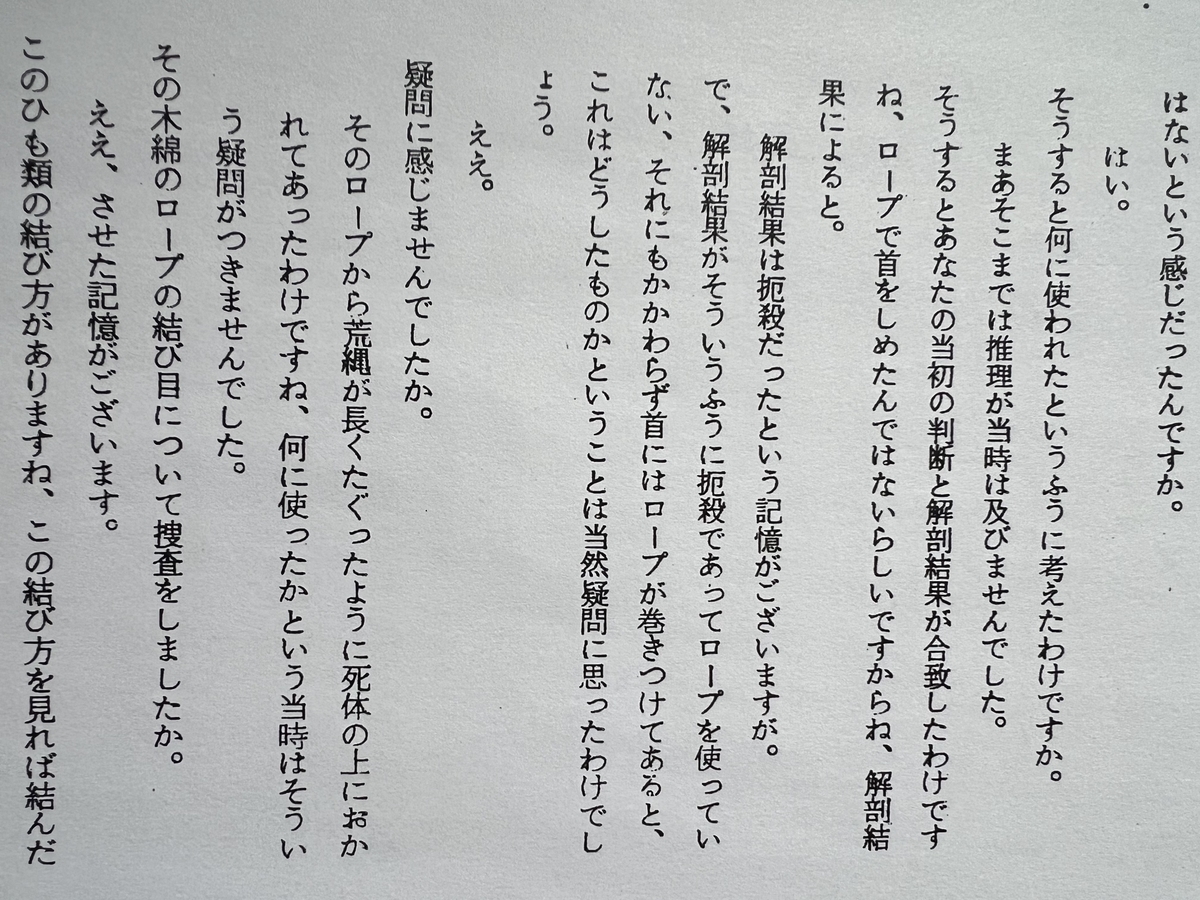 はないという感じだったんですか。
はい。
そうすると何に使われたというふうに考えたわけですか。
まあそこまでは推理が当時は及びませんでした。
そうするとあなたの当初の判断と解剖結果が合致したわけです
ね、ロープで首をしめたんではないらしいですからね、解剖結
果によると。
解剖結果は扼殺だったという記憶がございますが。
で、解剖結果がそういうふうに扼殺であってロープを使ってい
ない、それにもかかわらず首にはロープが巻きつけてあると、
これはどうしたものかということは当然疑問に思ったわけでし
ょう。
ええ。
疑問に感じませんでしたか。
そのロープから荒縄が長くたぐったように死体の上におか
れてあったわけですね、何に使ったかという当時はそうい
う疑問がつきませんでした。
その木綿のロープの結び目について捜査をしましたか。
ええ、させた記憶がございます。
このひも類の結び方がありますね、この結び方を見れば結んだ